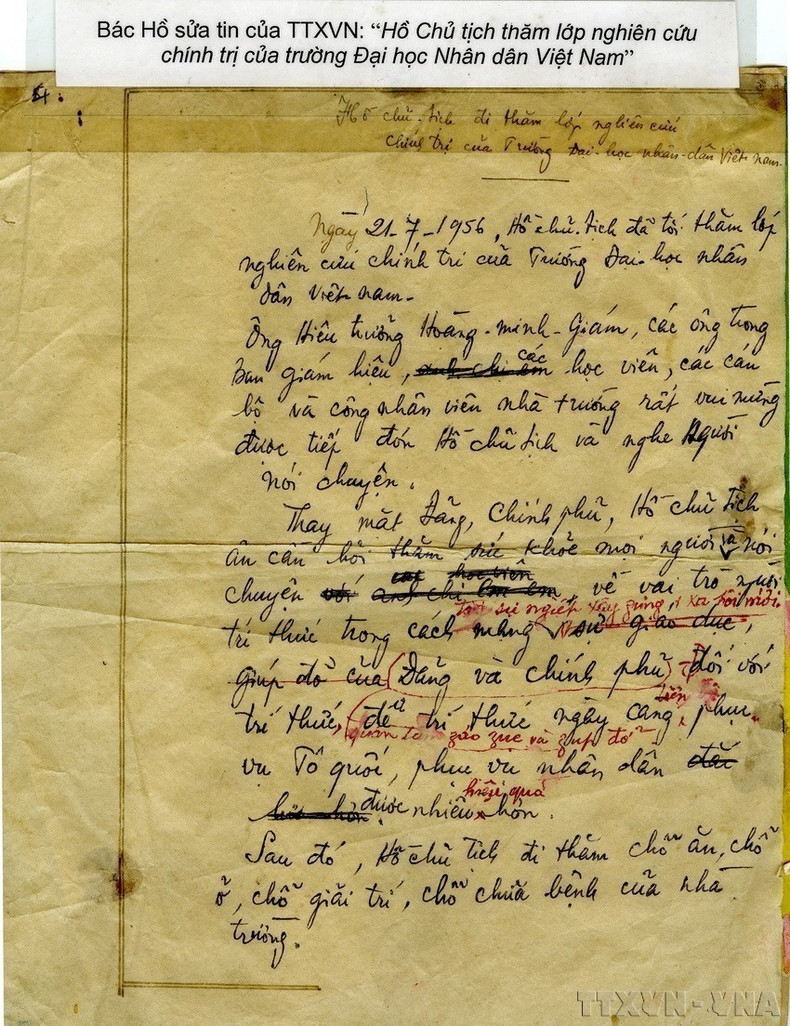 Bác Hồ sửa tin của TTXVN: “Hồ Chủ tịch thăm lớp nghiên cứu
chính trị của trường Đại học Nhân dân Việt Nam”
Hồ chủ-tịch đi thăm lớp nghiên cứu
chính trị của Trường Đại-học nhân-dân Việt-nam.
Ngày 21-7-1956, Hồ chủ-tịch đã tới thăm lớp
nghiên cứu chính trị của Trường Đại-học nhân
dân Việt-nam.
Ông Hiệu trưởng Hoàng-minh-Giám, các ông trong
ban giám hiệu, anh chị em các học viên, các cán
bộ và công nhân viên nhà trường rất vui mừng
được tiếp đón Hồ chủ tịch và nghe Người
nói chuyện.
Thay mặt Đảng, Chính phủ, Hồ chủ tịch
ân cần hỏi thăm sức khỏe mọi người và nói
các học viên
chuyện với anh chị em, về vai trò người
sự nghiệp xây zựng xã hội mới
trí thức trong cách mạng, sự giáo dục,
giúp đỡ của Đảng và chính phủ đối với
tiến bộ
trí thức, để trí thức ngày càng phục
quan tâm záo zục và zúp đỡ
vụ Tổ quốc, phục vụ nhân dân đắc
hiệu quả
lực hơn được nhiều hơn.
Sau đó, Hồ chủ tịch đi thăm chỗ ăn, chỗ
ở, chỗ giải trí, chỗ chữa bệnh của nhà
trường.
TTXVN-VNA